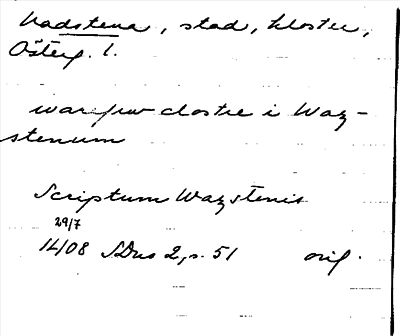 Vadstena, stad, kloster,
Österg. l.
warefrw clostre i Waz-
stenum
Scriptum Wazstenis
29/7
1408 SDns 2, s. 51 orig.